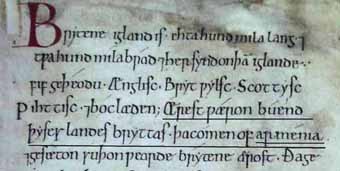 Brytene igland is ehta hund mila lang ⁊
tƿa hund mila brad ⁊ her syndon þā iglande
fif geþeodu. Ænglisc. Brytƿylsc. Scottysc
Pihttisc. ⁊ boclæden; Ærest ƿæron buend
þyses landes bryttas. þa comen of armenia.
⁊ gesæton suþonƿearde brytene ærost. Ða ge